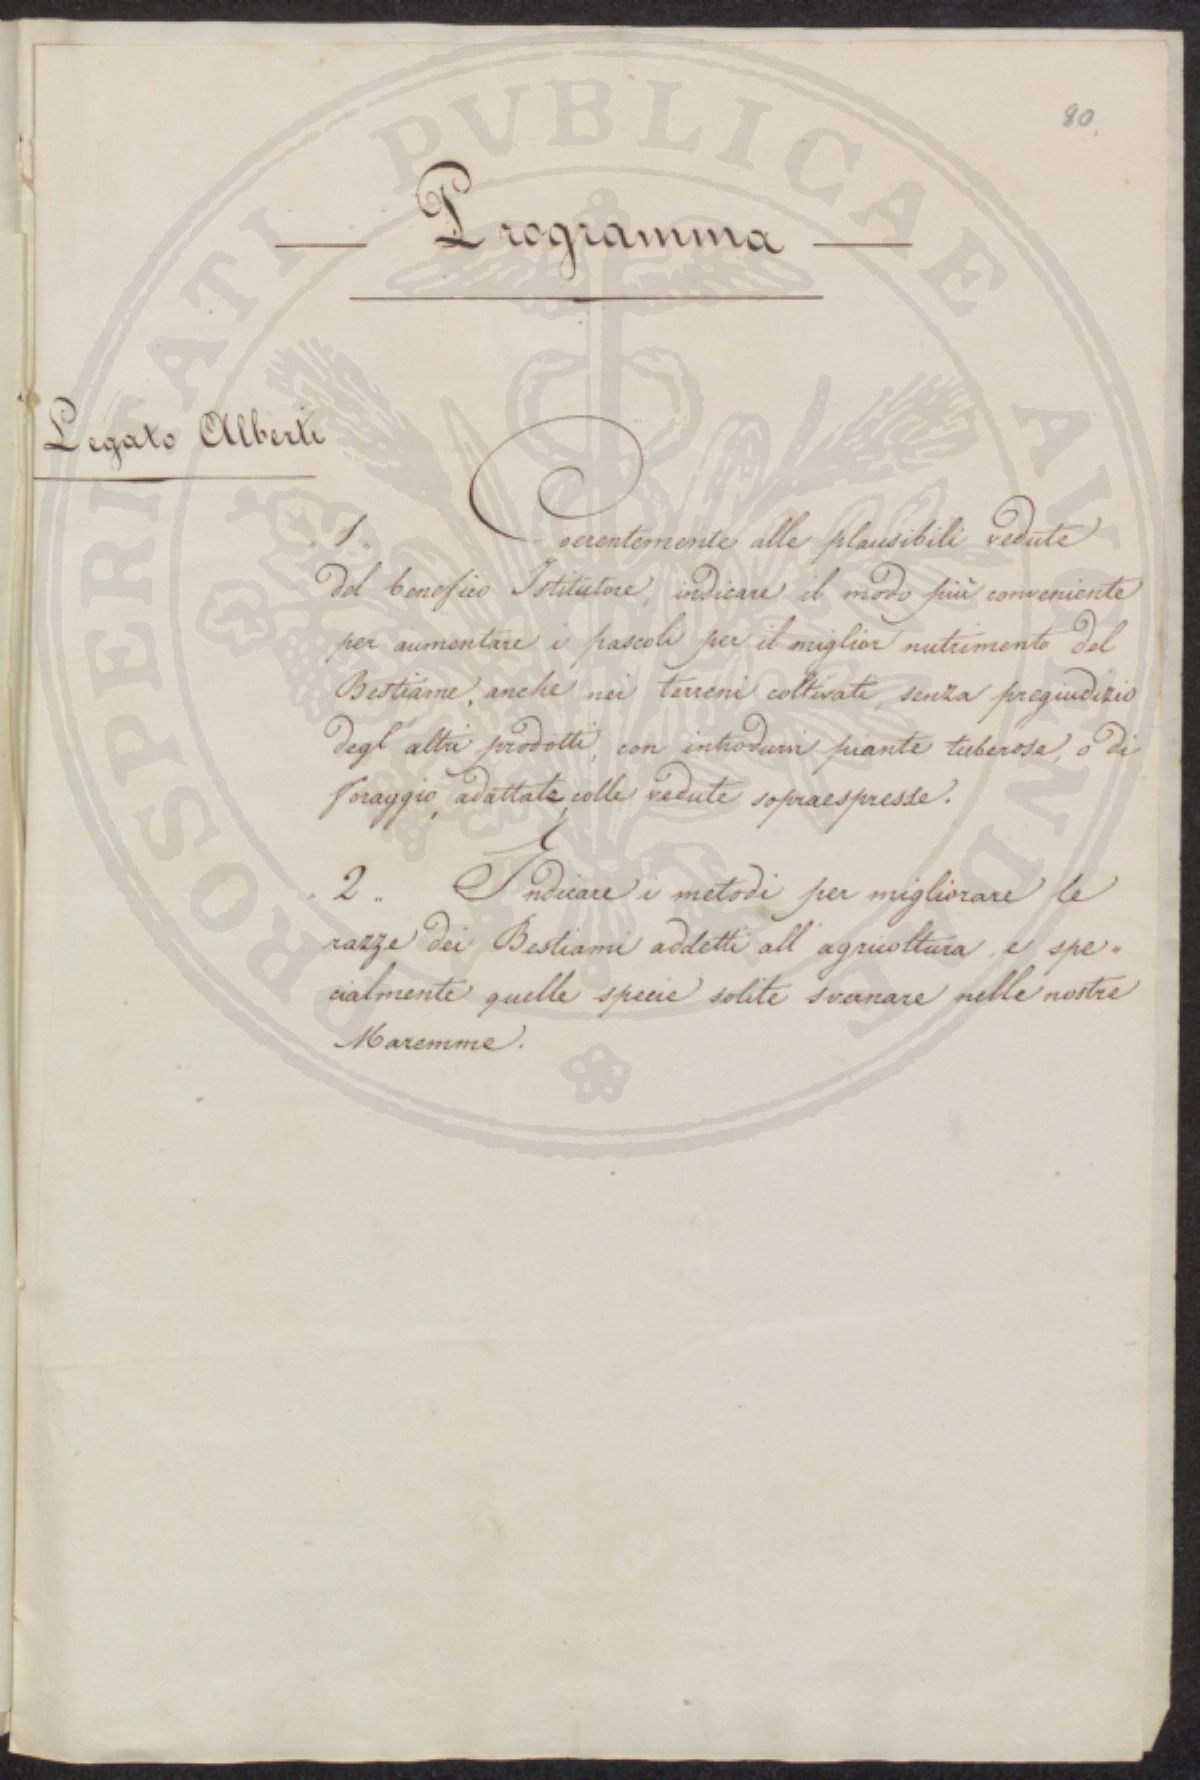 80.
Programma
Legato Alberti
„ 1 „ Coerentemente alle plausibili vedute
del benefico Istitutore, indicare il modo più conveniente
per aumentare i pascoli per il miglior nutrimento del
Bestiame, anche nei terreni coltivati, senza pregiudizio
degl'altri prodotti, con introdurvi piante tuberose, o di
foraggio, adattate colle vedute sopraespresse.
„ 2 „ Indicare i metodi per migliorare le
razze dei Bestiami addetti all'agricoltura, e spe„
cialmente quelle specie solite svernare nelle nostre
Maremme.
PROSPERITATI PVBLICAE AVGENDAE